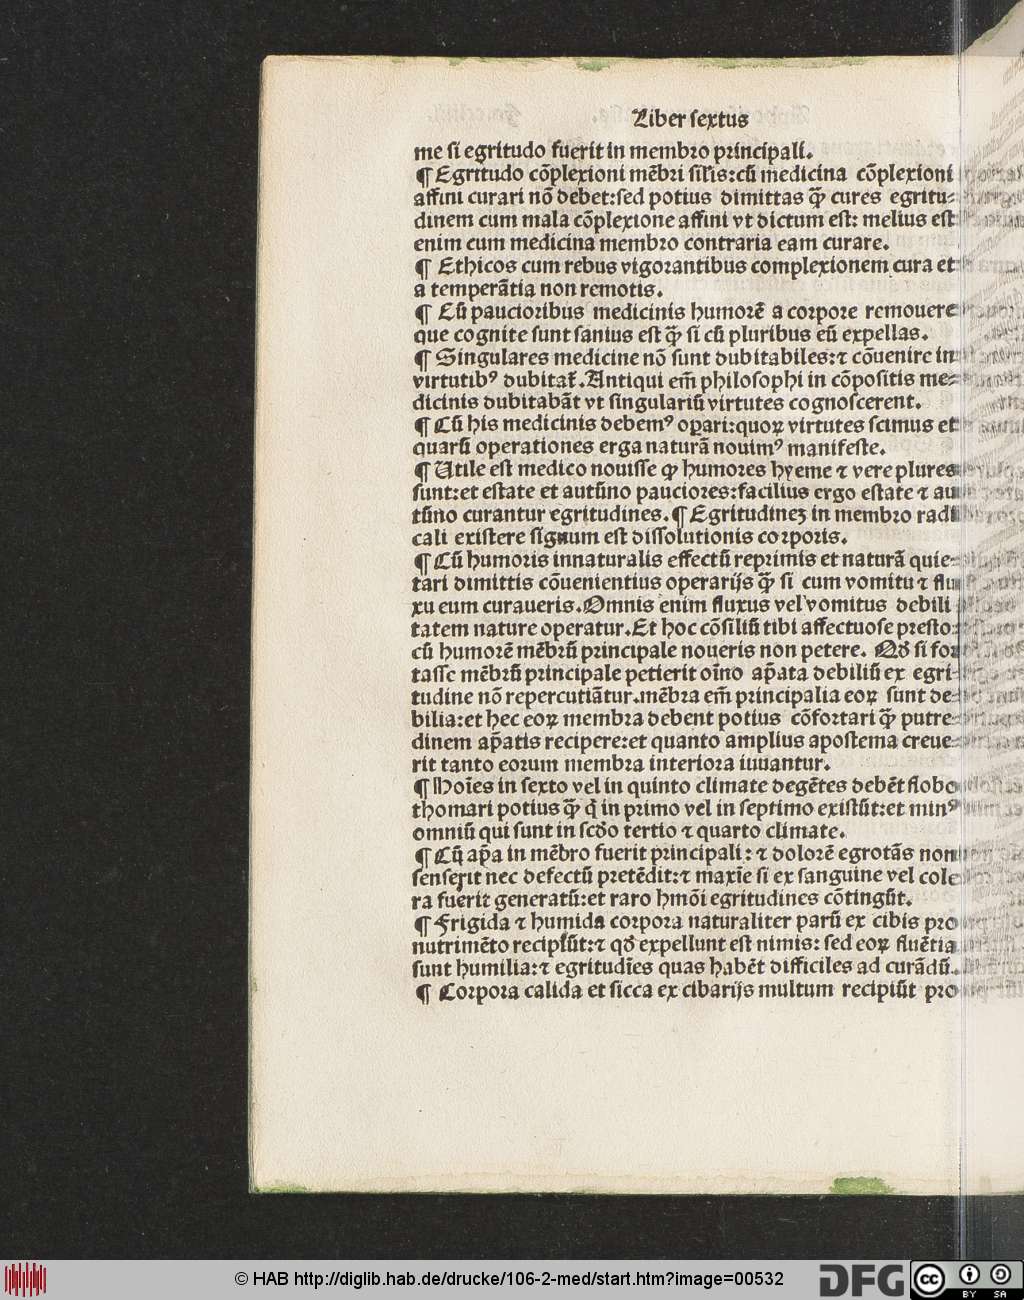 Liber sextus
me si egritudo fuerit in membro principali.
¶ Egritudo cōplexioni mēbri silis: cū medicina cōplexioni
affini curari nō debet: sed potius dimittas q̃ cures egritu⸗
dinem cum mala cōplexione affini vt dictum est: melius est
enim cum medicina membro contraria eam curare.
¶ Ethicos cum rebus vigorantibus complexionem cura et
a temperātia non remotis.
¶ Cū paucioribus medicinis humorē a corpore remouere
que cognite sunt sanius est q̃ si cū pluribus eū expellas.
¶ Singulares medicine nō sunt dubitabiles: ⁊ cōuenire in
virtutibꝰ dubitat᷒. Antiqui em̄ philosophi in cōpositis me⸗
dicinis dubitabāt vt singulariū virtutes cognoscerent.
¶ Cū his medicinis debemꝰ oꝑari: quoꝝ virtutes scimus et
quarū operationes erga naturā nouimꝰ manifeste.
¶ Utile est medico nouisse ꝙ humores hyeme ⁊ vere plures
sunt: et estate et autūno pauciores: facilius ergo estate ⁊ au
tūno curantur egritudines. ¶ Egritudineꝫ in membro radi
cali existere signum est dissolutionis corporis.
¶ Cū humoris innaturalis effectū reprimis et naturā quie⸗
tari dimittis cōuenientius operarijs q̃ si cum vomitu ⁊ flu
xu eum curaueris. Omnis enim fluxus vel vomitus debili
tatem nature operatur. Et hoc cōsiliū tibi affectuose presto:
cū humorē mēbrū principale noueris non petere. Qd̄ si for
tasse mēbrū principale petierit oīno ap̄ata debiliū ex egri⸗
tudine nō repercutiātur. mēbra em̄ principalia eoꝝ sunt de⸗
bilia: et hec eoꝝ membra debent potius cōfortari q̃ putre⸗
dinem ap̄atis recipere: et quanto amplius apostema creue⸗
rit tanto eorum membra interiora iuuantur.
¶ Hoīes in sexto vel in quinto climate degētes debēt flobo
thomari potius q̃ q̇ in primo vel in septimo existūt: et minꝰ
omniū qui sunt in scd̄o tertio ⁊ quarto climate.
¶ Cū ap̄a in mēbro fuerit principali: ⁊ dolorē egrotās non
senserit nec defectū pretēdit: ⁊ maxīe si ex sanguine vel cole
ra fuerit generatū: et raro hmōi egritudines cōtingūt.
¶ Frigida ⁊ humida corpora naturaliter parū ex cibis pro
nutrimēto recipiūt: ⁊ qd̄ expellunt est nimis: sed eoꝝ fluētia
sunt humilia: ⁊ egritudīes quas habēt difficiles ad curādū.
¶ Corpora calida et sicca ex cibarijs multum recipiūt pro
© HAB http://diglib.hab.de/drucke/106-2-med/start.htm?image=00532
DFG
cc BY SA